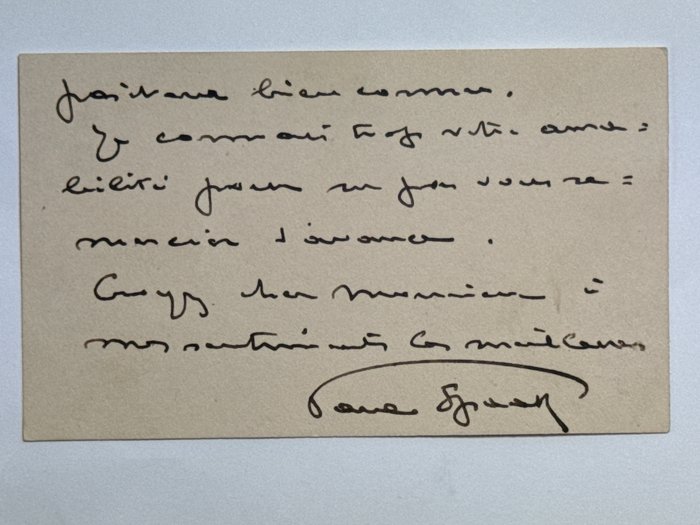 bien connu.
Je connais trop votre ama=
bilité pour ne pas vous re=
mercier d'avance.
Croyez cher Monsieur à
mes sentiments les meilleurs
Paul Spaak